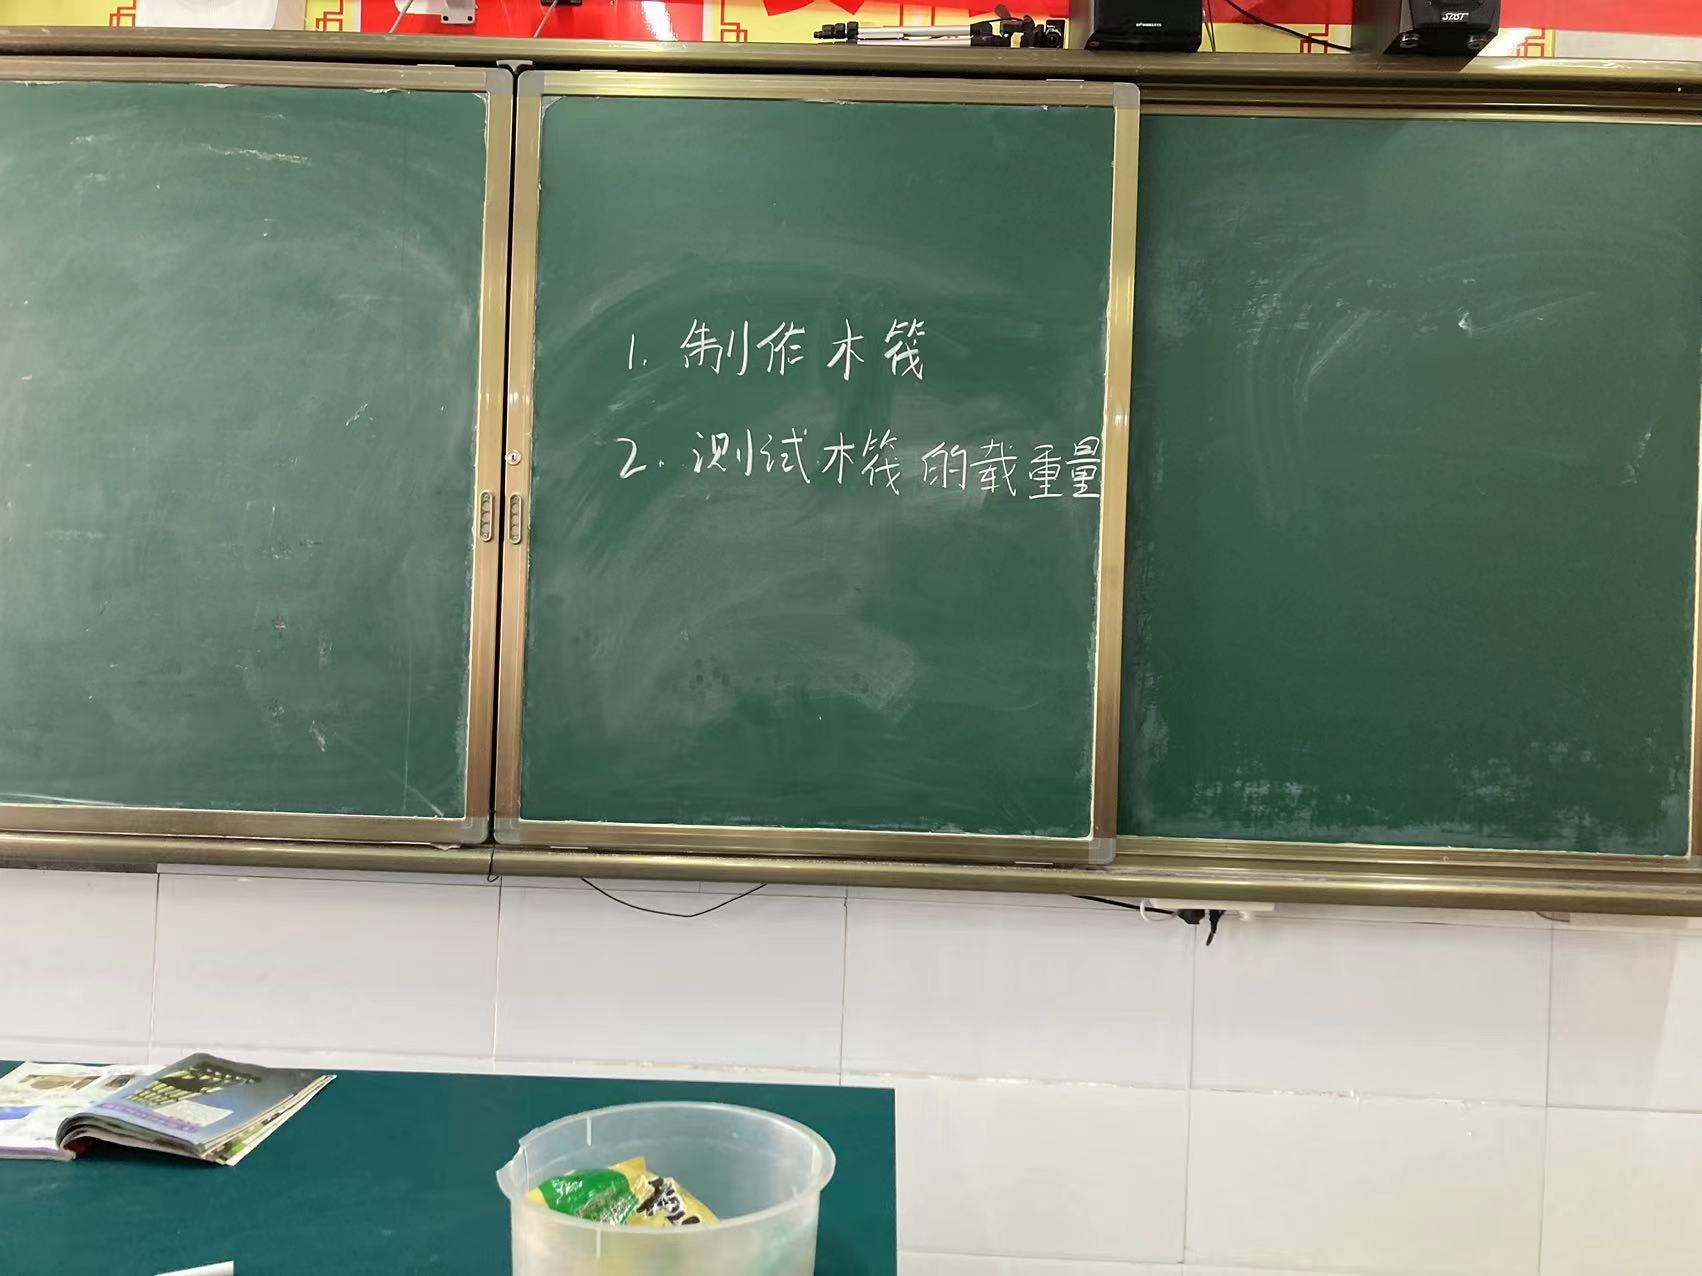 SAST
1. 制作木筏
2. 测试木筏的载重量